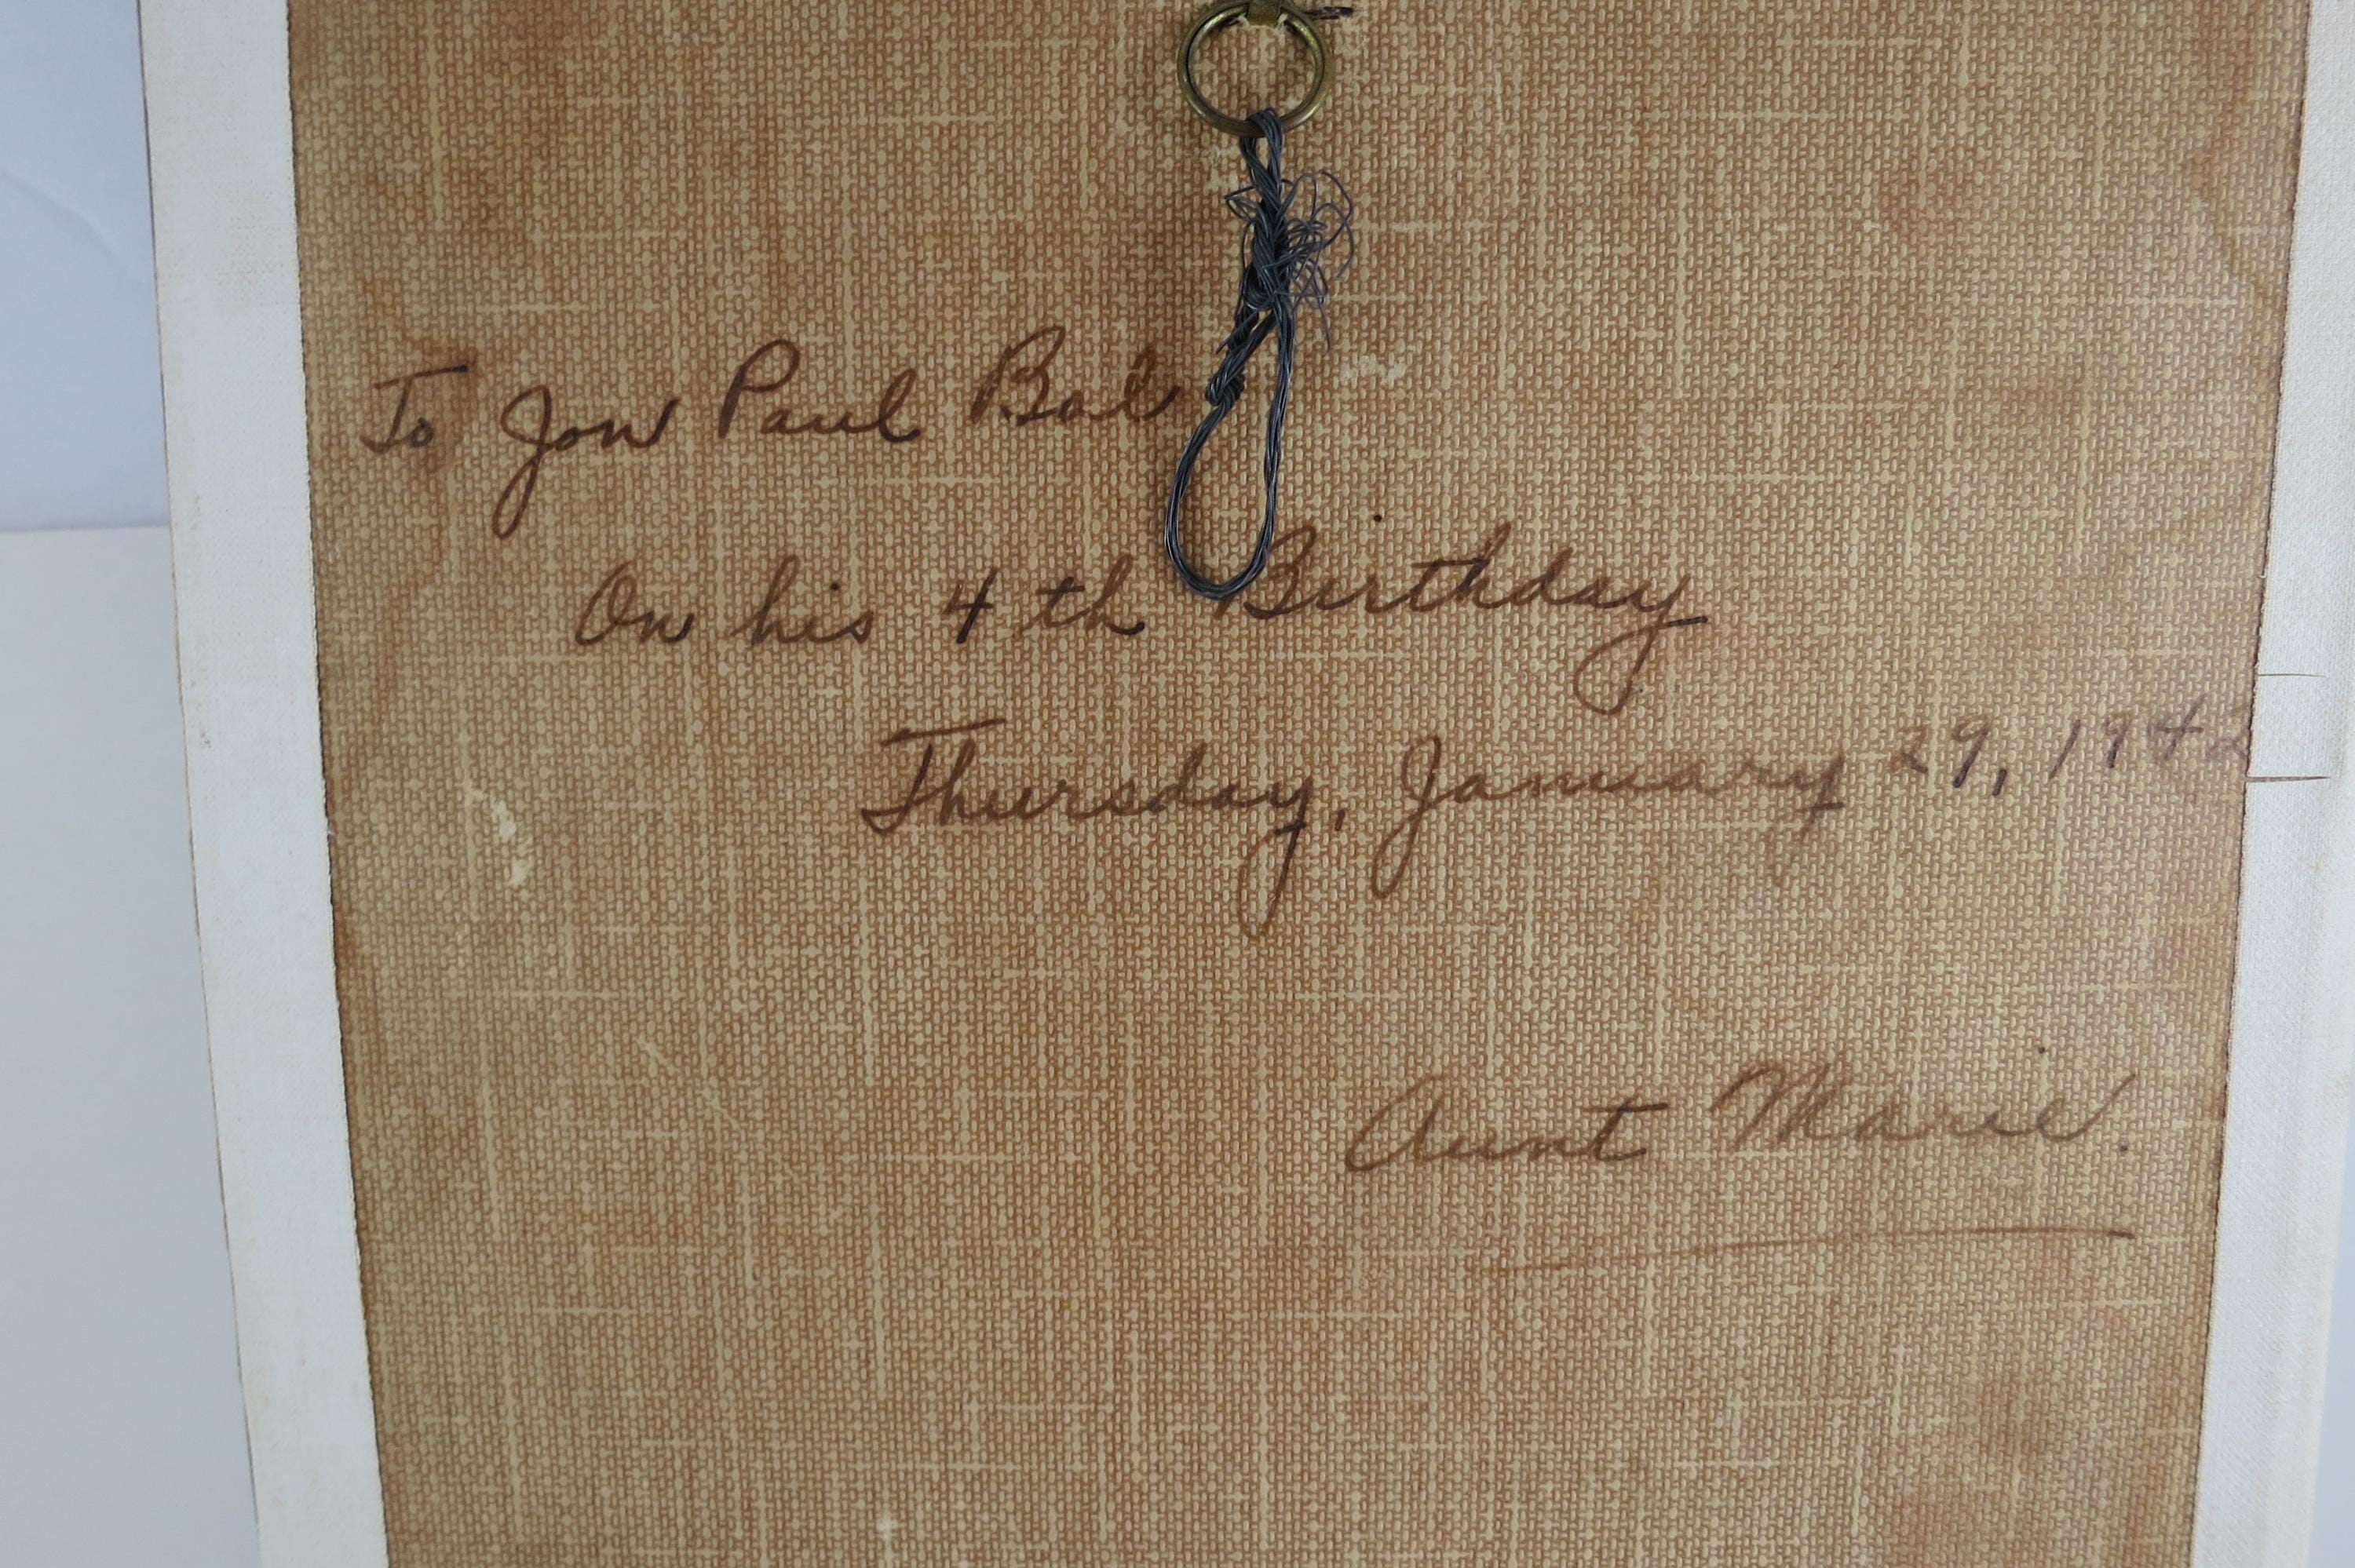 To Jon Paul Bal
On his 4th Birthday
Thursday, January 29, 1942
Aunt Marie.